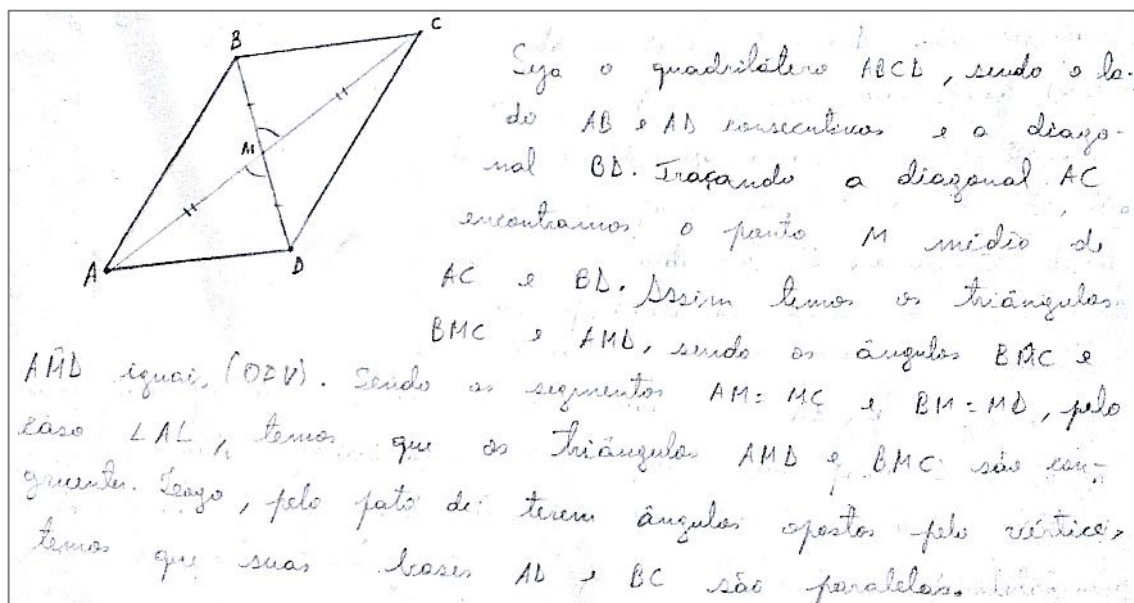 B
C
M
A
D
Seja o quadrilátero ABCD, sendo o la-
do AB e AD consecutivos e a diago-
nal BD. Traçando a diagonal AC
encontramos o ponto M médio de
AC e BD. Assim temos os triângulos
BMC e AMD, sendo os ângulos BM̂C e
AM̂D iguais (OPV). Sendo os segmentos AM = MC e BM = MD, pelo
caso LAL, temos que os triângulos AMD e BMC são con-
gruentes. Logo, pelo fato de terem ângulos opostos pelo vértice,
temos que suas bases AD e BC são paralelas.